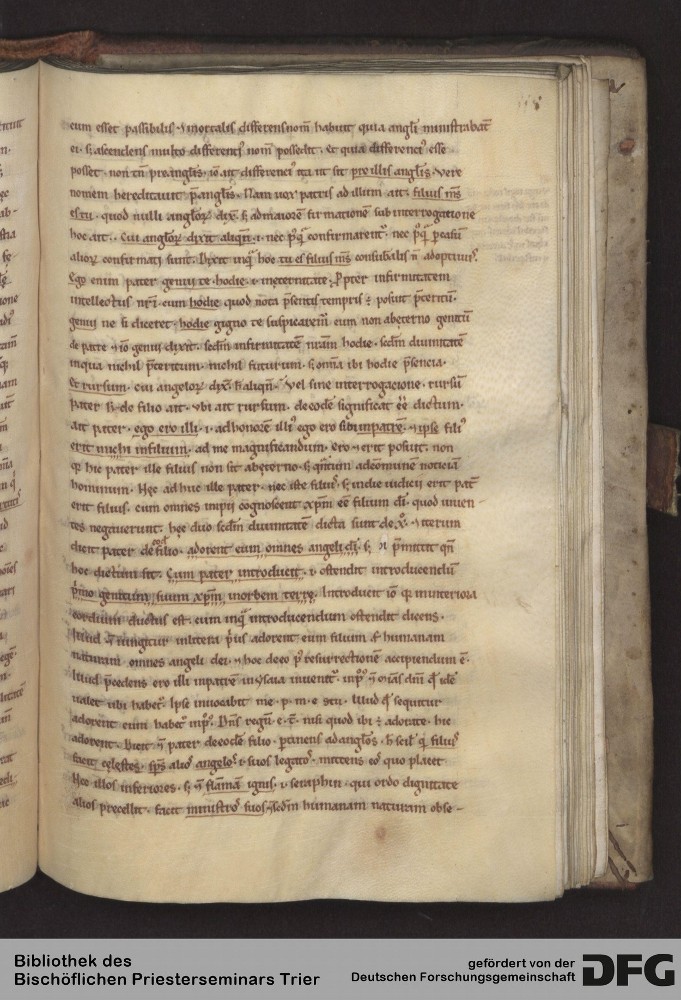 118
cum esset passibilis ⁊ mortalis differens nom̄ habuit quia angl̄i ministrabāt
ei. s; ascendens multo differentiꝰ nom̄ possedit. Et quia differentiꝰ esse
posset. non tn̄ pre angl̄is. iō ait differentiꝰ ita ut sit pre illis angl̄is. Vere
nomen hereditauit p̄ angl̄is. Nam uox patris ad illum ait. filius m̄s
es tu. quod nulli angloꝝ dix̄. s; ad maiorē firmationē sub interrogatione
hoc ait. Cui angloꝝ dixit aliqn̄. nec confirmarent᷑. nec
alioꝝ confirmati sunt. Dixit inq̄ hoc tu es filius m̄s consubstalis n̄ adoptiuꝰ.
Ego enim pater genui te. hodie. i. in eternitate. Ppter infirmitatem
intellectus nr̄i cum hodie quod nota p̄sentis temporis ÷ posuit p̄teritū.
genui ne si diceret. hodie gigno te suspicarem̄ eum non ab eterno genitū
de patre ⁊ iō genui dixit. scd̄m infirmitatē nr̄am hodie. scd̄m diuinitatē
in qua nichil p̄teritum. nichil futurum. s; om̄ia ibi hodie p̄sencia.
Et rursum. cui angeloꝝ dix̄ aliqn̄. Vel sine interrogacione. rursū
pater de filio ait. Vbi ait rursum. de eodē significat ēē dictum.
ait pater. ego ero illi. i. ad honorē illiꝰ ego ero sibi in patrē. ⁊ ipse filiꝰ
erit michi in filium. ad me magnificandum. ero ⁊ erit posuit. non
q̄ hic pater ille filius non sit ab eterno. s; q̄ntum ad comunē noticiā
hominum. Hęc adhuc ille pater. nec iste filiꝰ. s; in die iudicij erit pat̄
erit filius. cum omnes impii cognoscent xp̄m ēē filium di. quod uiuen-
tes negauerunt. hęc duo scd̄m diuinitatē dicta sunt de x̄. ⁊ iterum
dicit pater de eodē filio. adorent eum omnes angeli di. s; p̄mittit qn̄
hoc dictum sit. Cum pater introducit. i. ostendit introducendū
p̄mo genitum suum xp̄m in orbem terrę. Introducit iō q̄ in interiora
cordium ductus est. cum inq̄ introducendum ostendit dicens.
Illud iungitur in litera p̄us adorent eum filium humanam
naturam omnes angeli dei. ⁊ hoc de eo p̄ resurrectionē accipiendum ē.
Illud p̄cedens ero illi in patrem in ysaia inuenit᷑.
ualet ubi habet᷑. Ipse inuocabit me. p. m. e. stu. Illud q̄ sequitur
adorent eum habet᷑ Dn̄s regn̄. e. t. nisi quod ibi ÷ adorate. hic
adorent. Dicit pater de eodē filio. ptinens ad anglos.
facit cęlestes. sps alios angelos. i. suos legatos. mittens eos quo placet
Hęc illos inferiores. s; ⁊ flāmā ignis. i. seraphin. qui ordo dignitate
alios precellit. facit ministros suos scd̄m humanam naturam obse-
Bibliothek des
Bischöflichen Priesterseminars Trier
gefördert von der
Deutschen Forschungsgemeinschaft
DFG